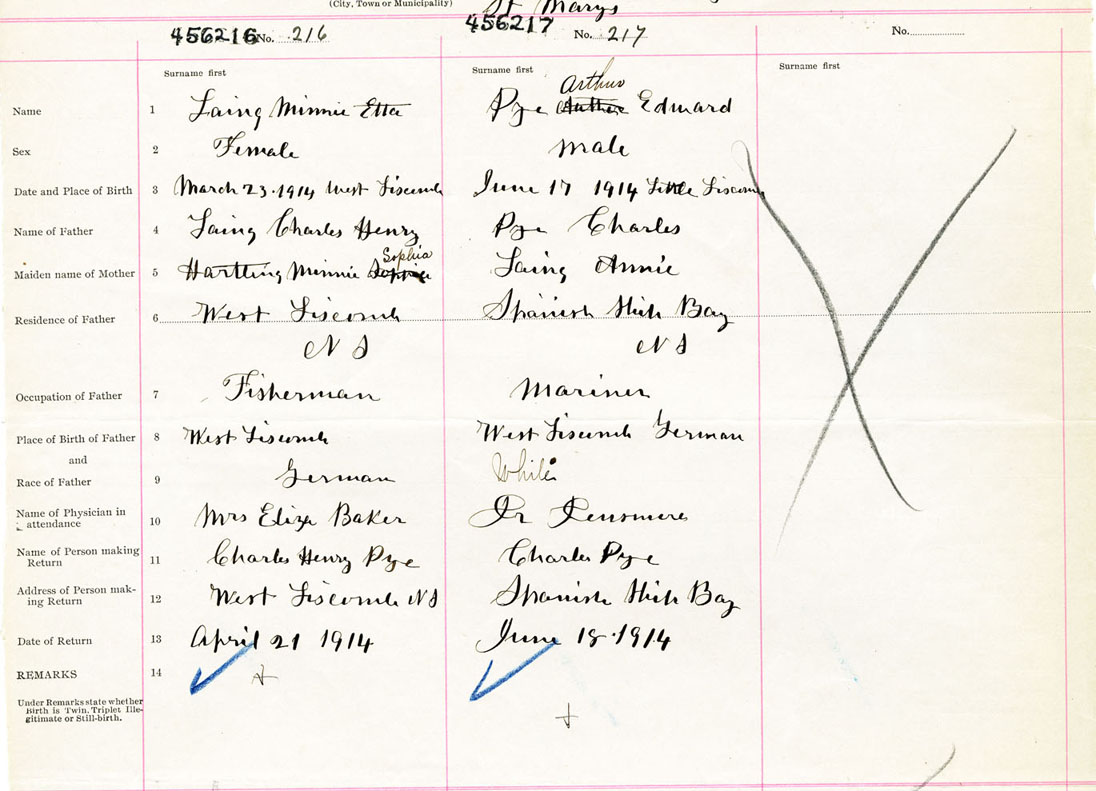 (City, Town or Municipality) St Marys
456216 No. 216 456217 No. 217 No.
Surname first Surname first Surname first
Arthur
Name 1 Laing Minnie Etta Pye Edward
Sex 2 Female male
Date and Place of Birth 3 March 23. 1914 West Liscomb June 17 1914 Little Liscomb
Name of Father 4 Laing Charles Henry Pye Charles
Sophia
Maiden name of Mother 5 Hartling Minnie Laing Annie
Residence of Father 6 West Liscomb Spanish Ship Bay
N S N S
Occupation of Father 7 Fisherman Mariner
Place of Birth of Father 8 West Liscomb West Liscomb German
and
Race of Father 9 German White
Name of Physician in 10 Mrs Eliza Baker Dr Densmore
attendance
Name of Person making 11 Charles Henry Pye Charles Pye
Return
Address of Person mak- 12 West Liscomb N S Spanish Ship Bay
ing Return
Date of Return 13 April 21 1914 June 18. 1914
REMARKS 14
Under Remarks state whether
Birth is Twin. Triplet Ille-
gitimate or Still-birth.